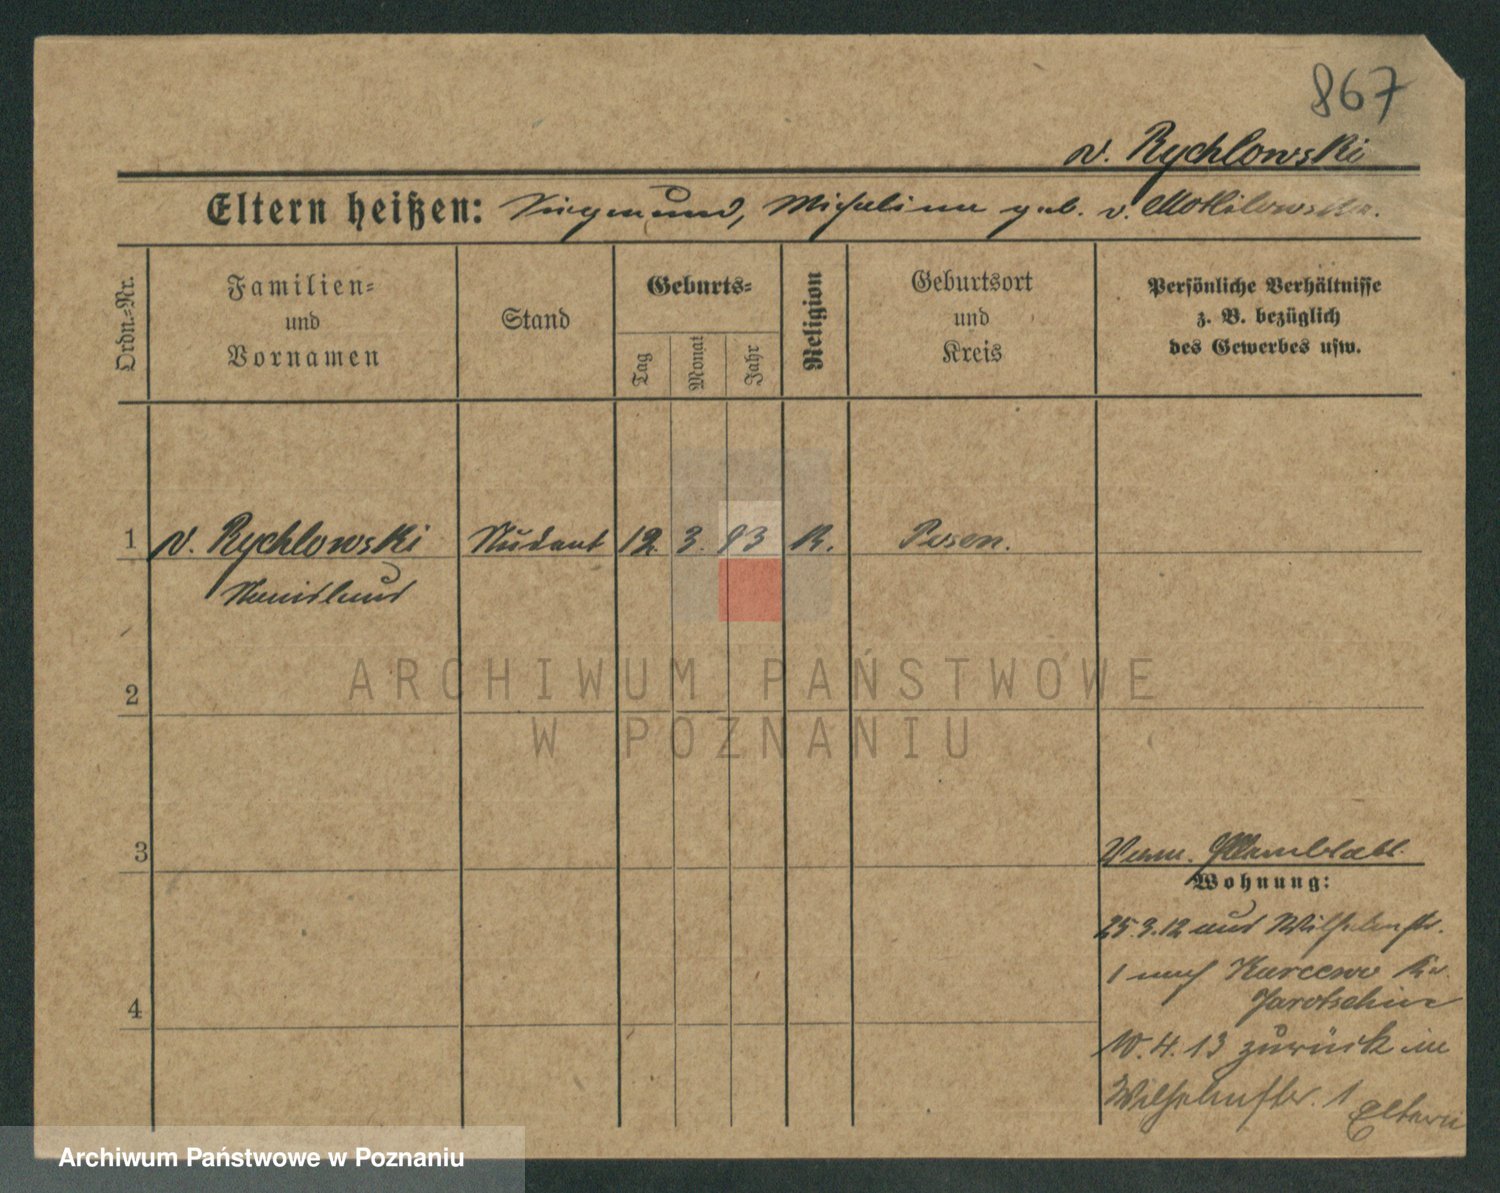 867
v. Rychlowski
Eltern heißen: Siegmund, Michalina geb. v.
Ordn.-Nr.
Familien-
und
Vornamen
Stand
Geburts-
Tag
Monat
Jahr
Religion
Geburtsort
und
Kreis
Persönliche Verhältnisse
z. B. bezüglich
des Gewerbes usw.
1 v. Rychlowski Student 12. 3. 93 R. Posen.
Stanislaus
2
3
4
Wohnung:
25.9.12 aus Wilhelmstr.
1 nach Karcewo Kr.
Jarotschin
10.4.13 zurück in
Wilhelmstr. 1 Eltern
ARCHIWUM PAŃSTWOWE
W POZNANIU
Archiwum Państwowe w Poznaniu